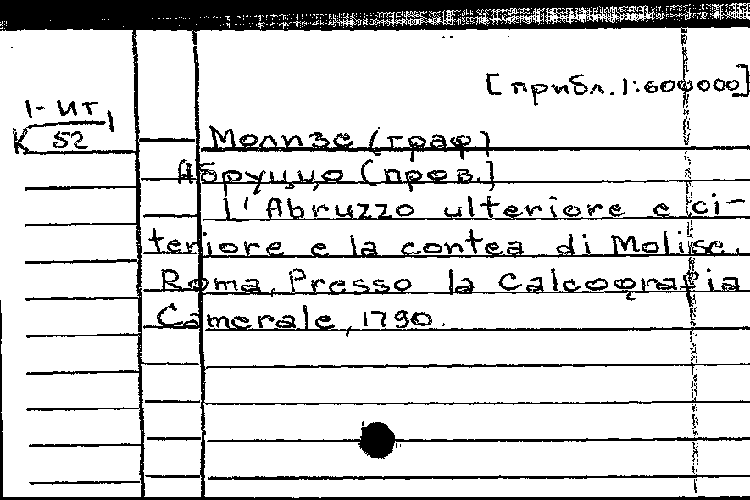 [прибл. 1:600000]
1-ИТ
К 52
Молизе (граф)
Абруццо (пров.)
L'Abruzzo ulteriore e ci-
teriore e la contea di Molise.
Roma, Presso la Calcografia
Camerale, 1790.